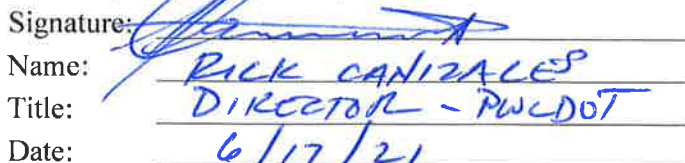 Signature:
Name: RICK CANIZALES
Title: DIRECTOR - PWCDOT
Date: 6/17/21